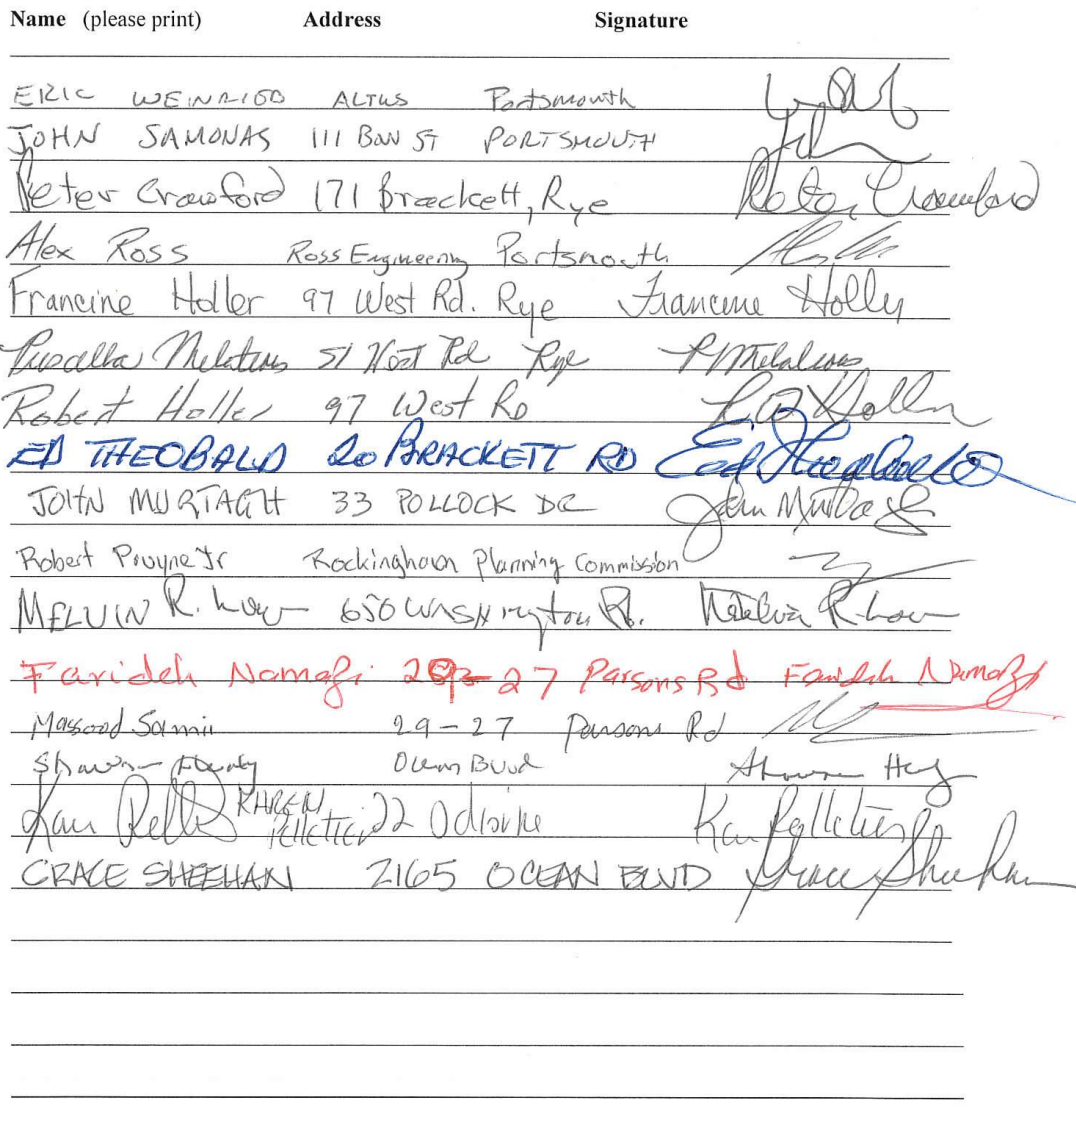 Name (please print) Address Signature
ERIC WEINRIEB ALTUS Portsmouth
JOHN SAMONAS 111 BOW ST PORTSMOUTH
Peter Crawford 171 Brackett, Rye Peter Crawford
Alex Ross Ross Engineering Portsmouth
Francine Holler 97 West Rd. Rye Francine Holler
51 West Rd Rye
Robert Holler 97 West Rd
ED THEOBALD 20 BRACKETT RD Ed Theobald
JOHN MURTAGH 33 POLLOCK DR John Murtagh
Robert Pruyne Jr Rockingham Planning Commission
MELVIN R. Low 650 WASHington Rd. Melvin R Low
Farideh Namazi 27 Parsons Rd Farideh Namazi
Massood Samii 29-27 Parsons Rd
Ocean Blvd
KAREN Pelletier 22 Odiorne Pelletier
GRACE SHEEHAN 2165 OCEAN BLVD Grace Sheehan